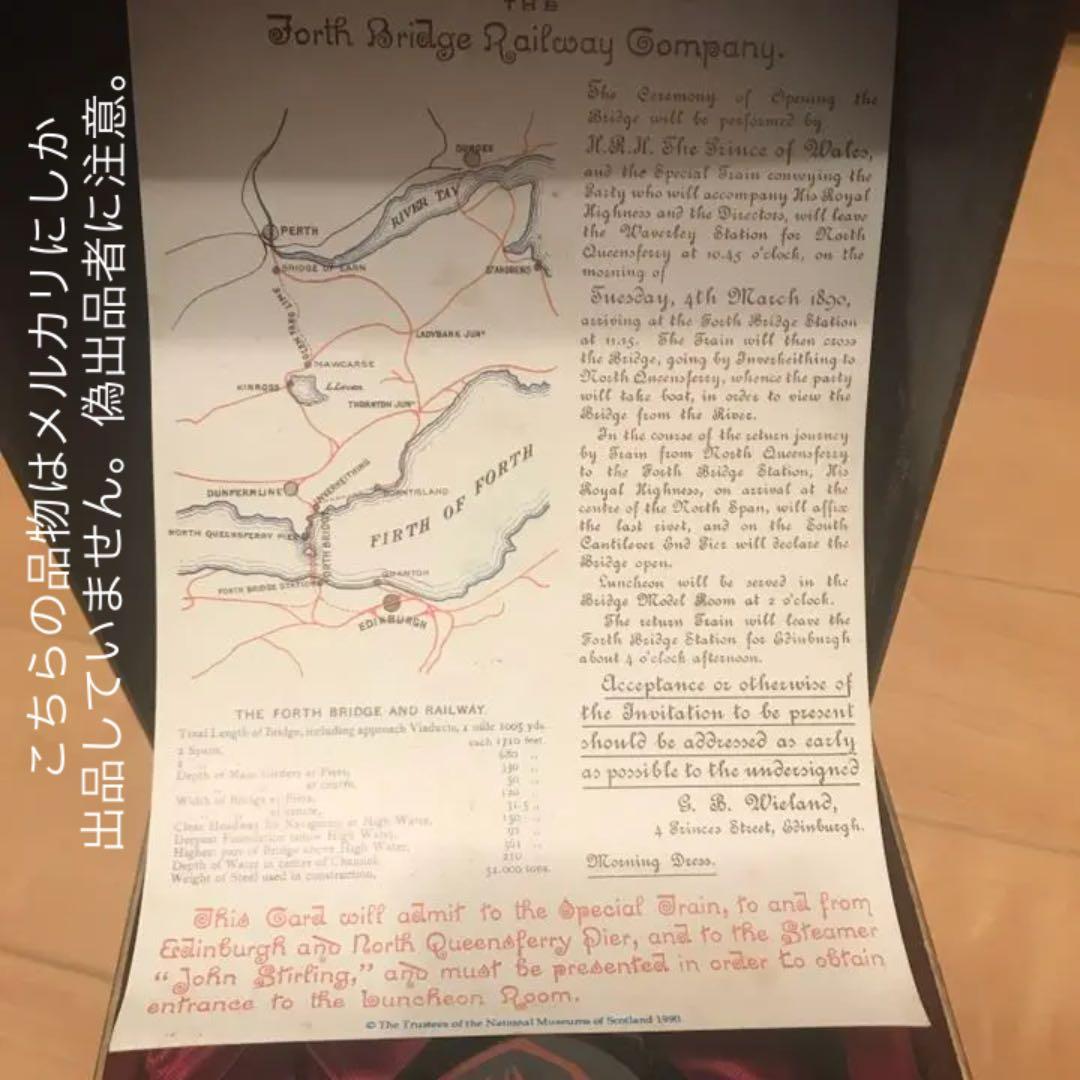 こちらの品物はメルカリにしか
出品していません。偽出品者に注意。
THE
Forth Bridge Railway Company.
DUNDEE
RIVER TAY
PERTH
BRIDGE OF EARN
ST ANDREWS
GLEN FARG LINE
LADYBANK JUNN
MAWCARSE
KINROSS
L. Leven
THORNTON JUNN
DUNFERMLINE
INVERKEITHING
BURNTISLAND
FIRTH OF FORTH
NORTH QUEENSFERRY PIER
FORTH BRIDGE
FORTH BRIDGE STATION
GRANTON
EDINBURGH
The Ceremony of Opening the
Bridge will be performed by
H.R.H. The Prince of Wales,
and the Special Train conveying the
Party who will accompany His Royal
Highness and the Directors, will leave
the Waverley Station for North
Queensferry at 10.45 o'clock, on the
morning of
Tuesday, 4th March 1890,
arriving at the Forth Bridge Station
at 11.15. The Train will then cross
the Bridge, going by Inverkeithing to
North Queensferry, whence the party
will take boat, in order to view the
Bridge from the River.
In the course of the return journey
by Train from North Queensferry
to the Forth Bridge Station, His
Royal Highness, on arrival at the
centre of the North Span, will affix
the last rivet, and on the South
Cantilever End Pier will declare the
Bridge open.
Luncheon will be served in the
Bridge Model Room at 2 o'clock.
The return Train will leave the
Forth Bridge Station for Edinburgh
about 4 o'clock afternoon.
Acceptance or otherwise of
the Invitation to be present
should be addressed as early
as possible to the undersigned
G. B. Wieland,
4 Princes Street, Edinburgh.
Morning Dress.
THE FORTH BRIDGE AND RAILWAY.
Total Length of Bridge, including approach Viaducts, 1 mile 1005 yds.
2 Spans, each 1710 feet.
2 " 680 "
Depth of Main Girders at Piers, 330 "
" at centre, 50 "
Width of Bridge at Piers, 120 "
" at centre, 31·5 "
Clear Headway for Navigation at High Water, 150 "
Deepest Foundation below High Water, 91 "
Highest part of Bridge above High Water, 361 "
Depth of Water in centre of Channel, 210 "
Weight of Steel used in construction, 51,000 tons.
This Card will admit to the Special Train, to and from
Edinburgh and North Queensferry Pier, and to the Steamer
"John Stirling," and must be presented in order to obtain
entrance to the Luncheon Room.
© The Trustees of the National Museums of Scotland 1990